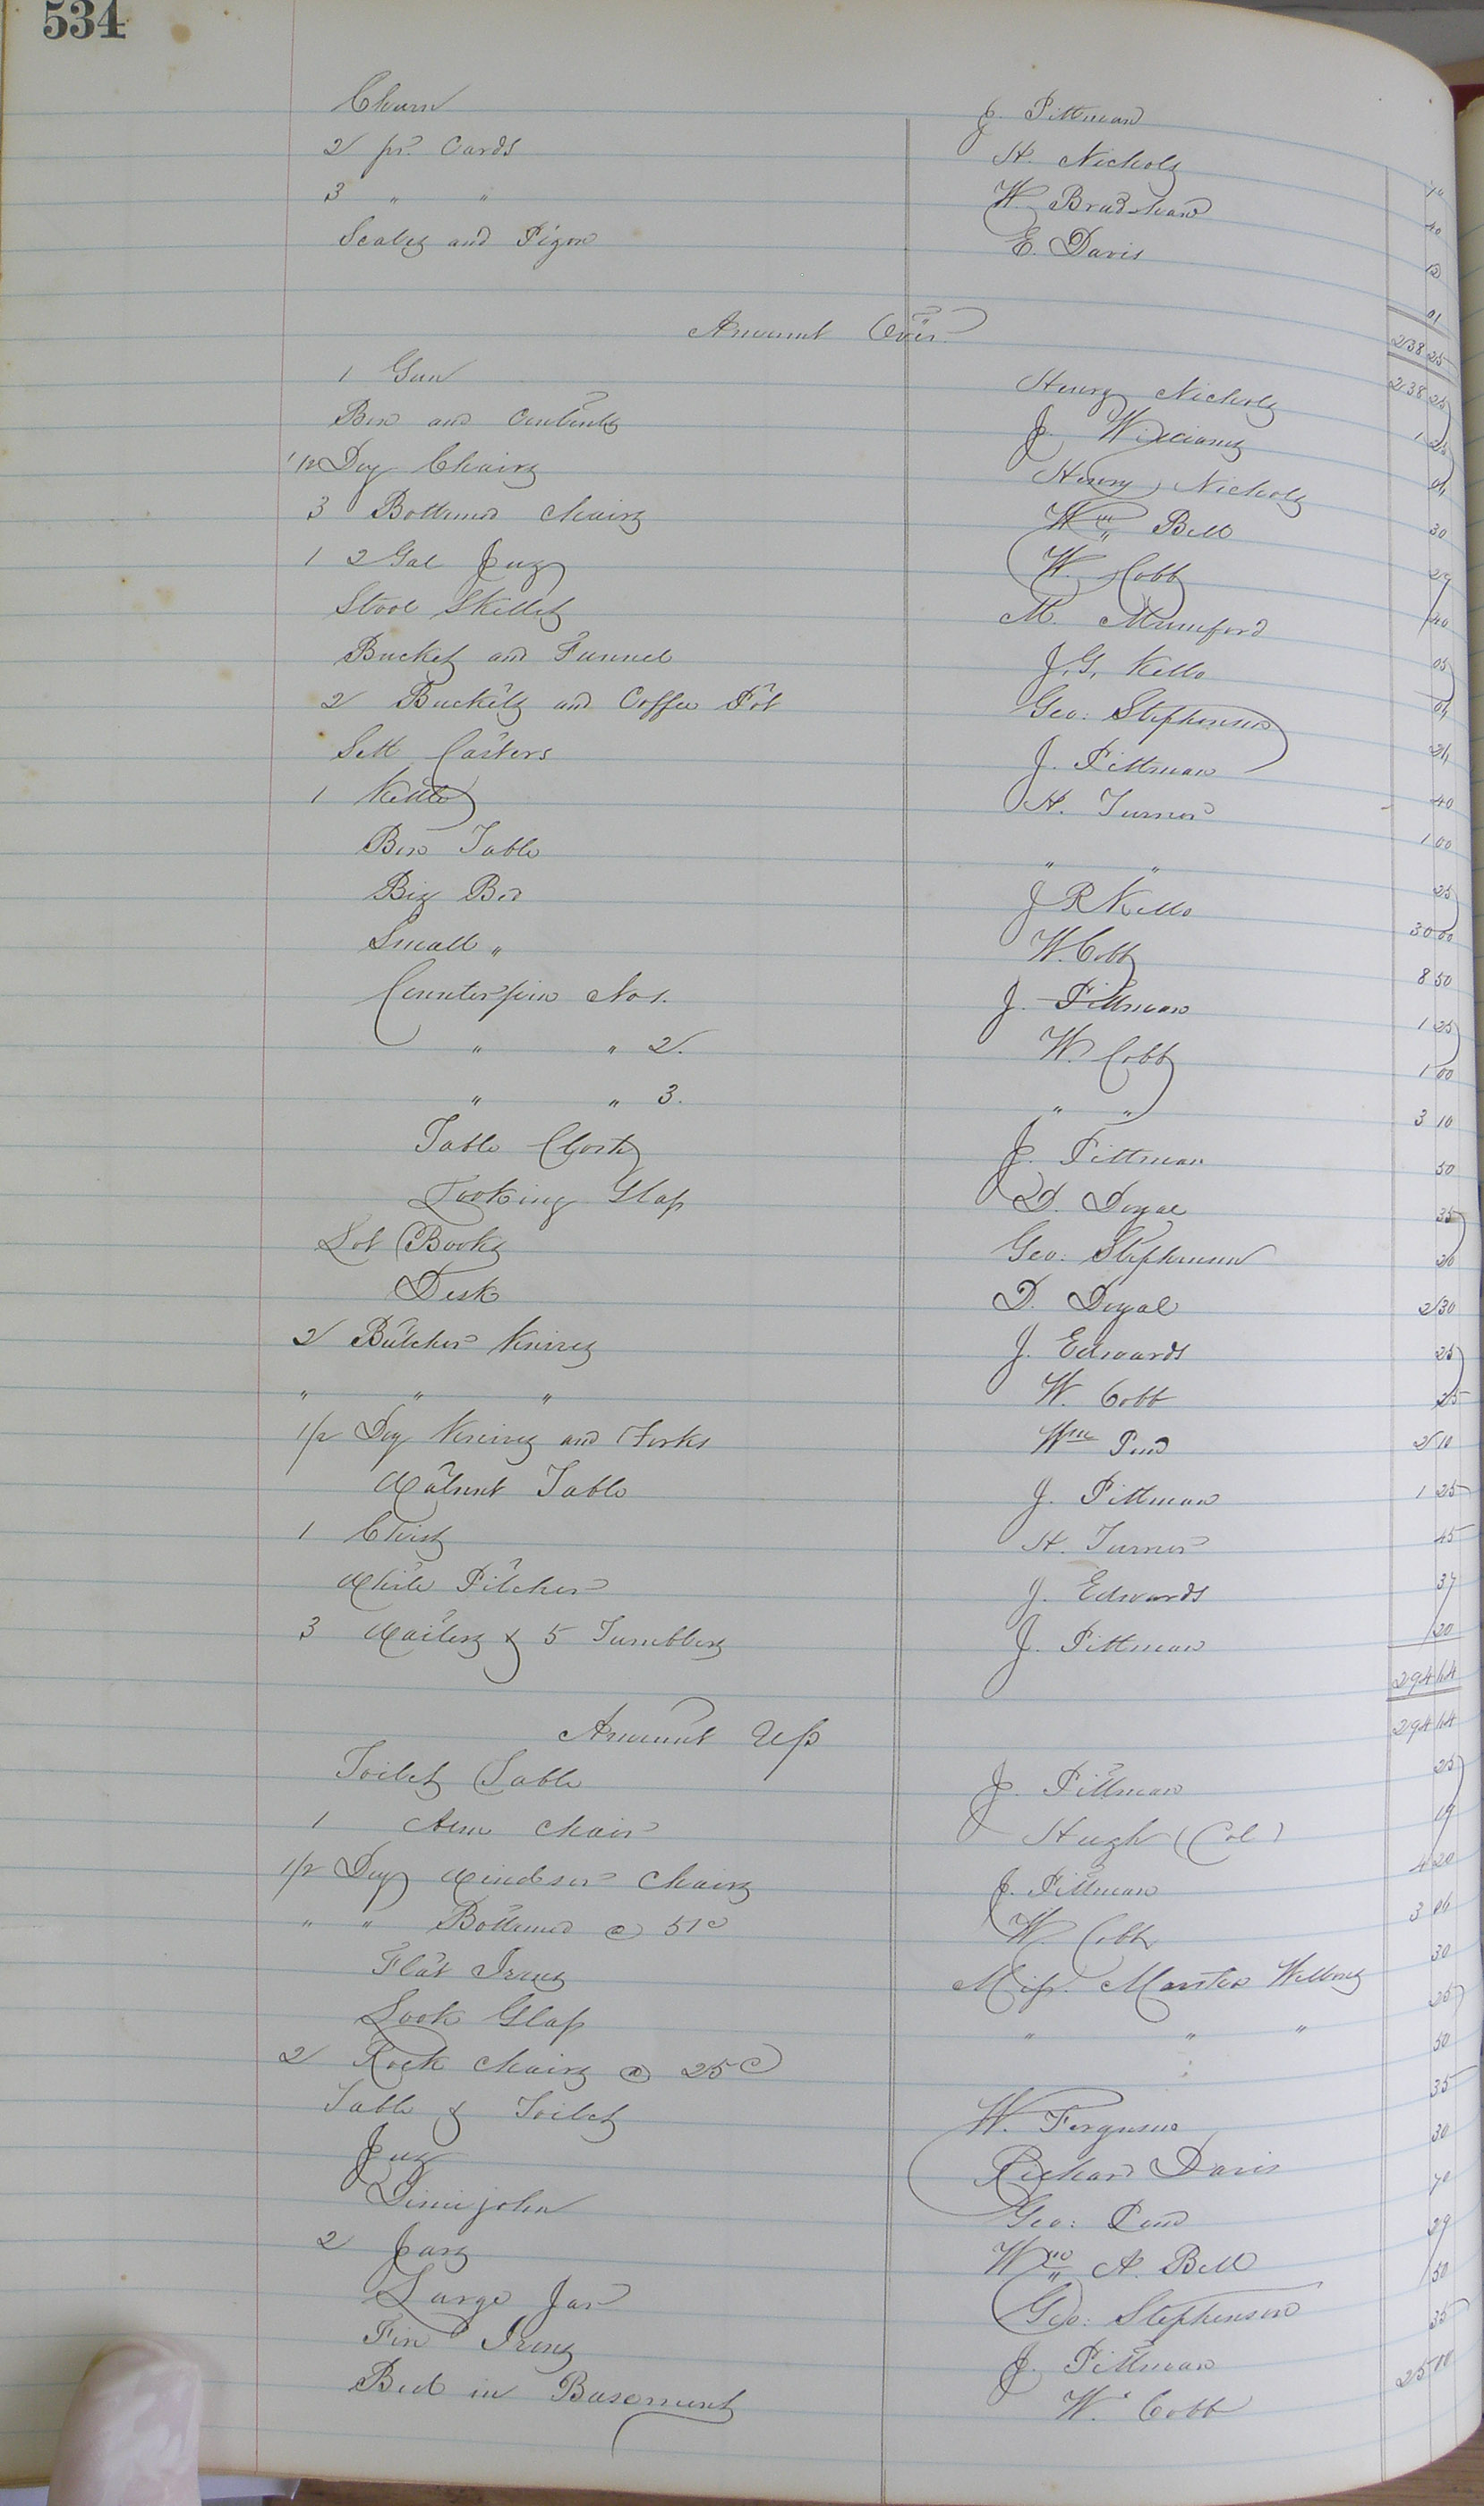 534
Churn J. Pittman 10
2 pr. Cards H. Nichols 40
3 " " W. Bradshaw 12
Scales and Pizon E. Davis 01
238 25
Amount Over 238 25
1 Gun Henry Nichols 1 25
Box and Contents J. Williams
1/2 Doz Chairs Henry Nichols 30
3 Bottomed Chairs Wm Bell
1 2 Gal Jug W. Cobb
Stove Skillet M. Mumford
Bucket and Funnel J. G. Kello 05
2 Buckets and Coffee Pot Geo: Stephenson
Sett Casters J. Pittman
1 Kettle H. Turner 40
Box Table " " 1 00
Big Bed J R Kello 25
Small " W. Cobb 30 00
Counterpin No 1. J. Pittman 8 50
" " 2. W. Cobb 1 25
" " 3. " " 1 00
Table Cloth J. Pittman 3 10
Looking Glass D. Doyal 50
Lot Books Geo: Stephenson 35
Desk D. Doyal 20
2 Butcher Knives J. Edwards 2 30
" " " W. Cobb 25
1/2 Doz Knives and Forks Wm Pond 25
Walnut Table J. Pittman 2 10
1 Chest H. Turner 1 25
White Pitcher J. Edwards 45
3 Waiters & 5 Tumblers J. Pittman 37
20
294 64
Amount Up 294 64
Toilet Table J. Pittman 25
1 Arm Chair Hugh (Col) 19
1/2 Doz Windsor Chairs J. Pittman 4 20
" " Bottomed @ 51c W. Cobb 3 06
Flat Irons Miss Martha Wellons 30
Look Glass " " " 25
2 Rock Chairs @ 25c 50
Table & Toilet W. Ferguson 35
Jug Richard Davis 30
Dimijohn Geo: Pond 70
2 Jars Wm A. Bell 29
Large Jar Geo: Stephenson 50
Fire Irons J. Pittman 35
Bed in Basement W. Cobb 25 10